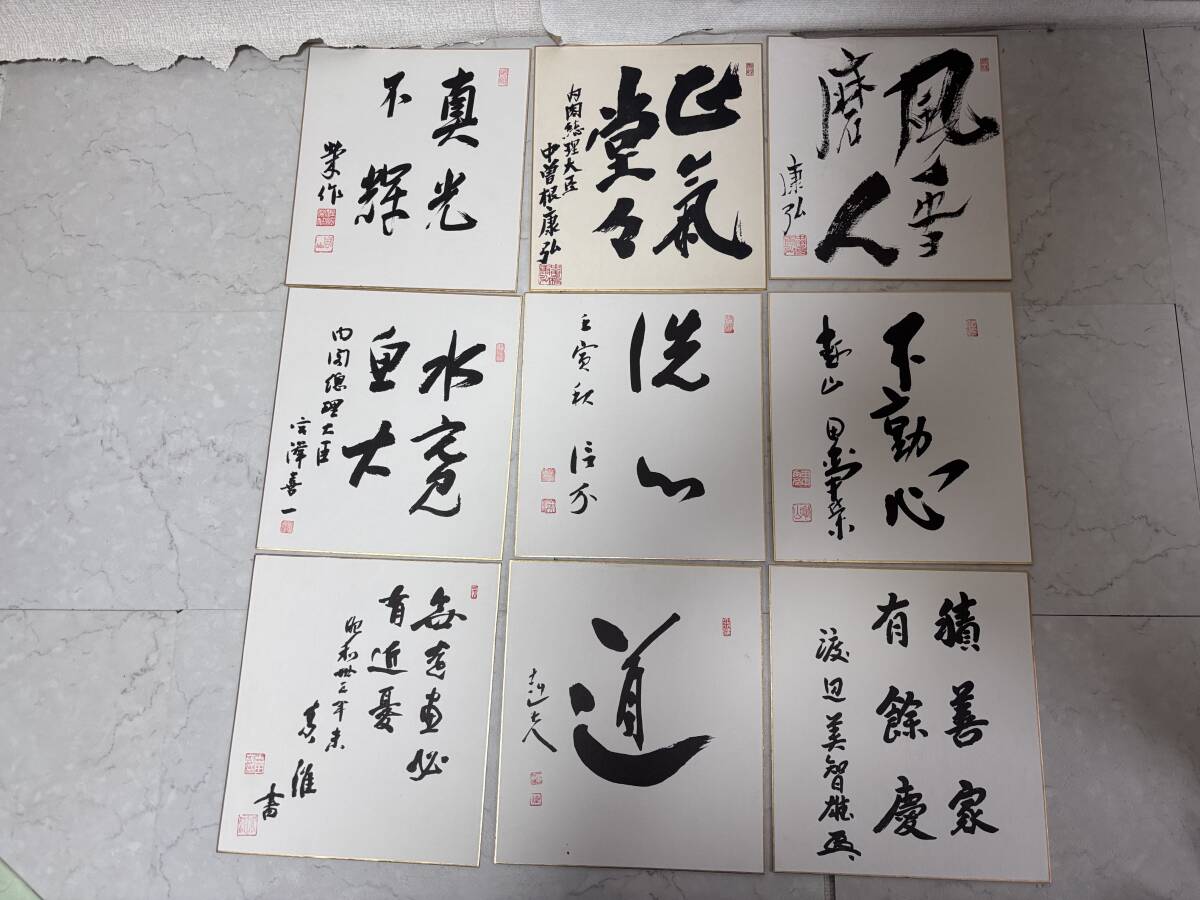 真光
不輝
榮作
正氣
堂々
内閣総理大臣
中曽根康弘
風雪
磨人
康弘
水寛
魚大
内閣總理大臣
宮澤喜一
洗心
壬寅秋 信介
不動心
越山 田中角榮
無遠慮必
有近憂
昭和卅三年末
素淮 書
道
積善家
有餘慶
渡辺美智雄